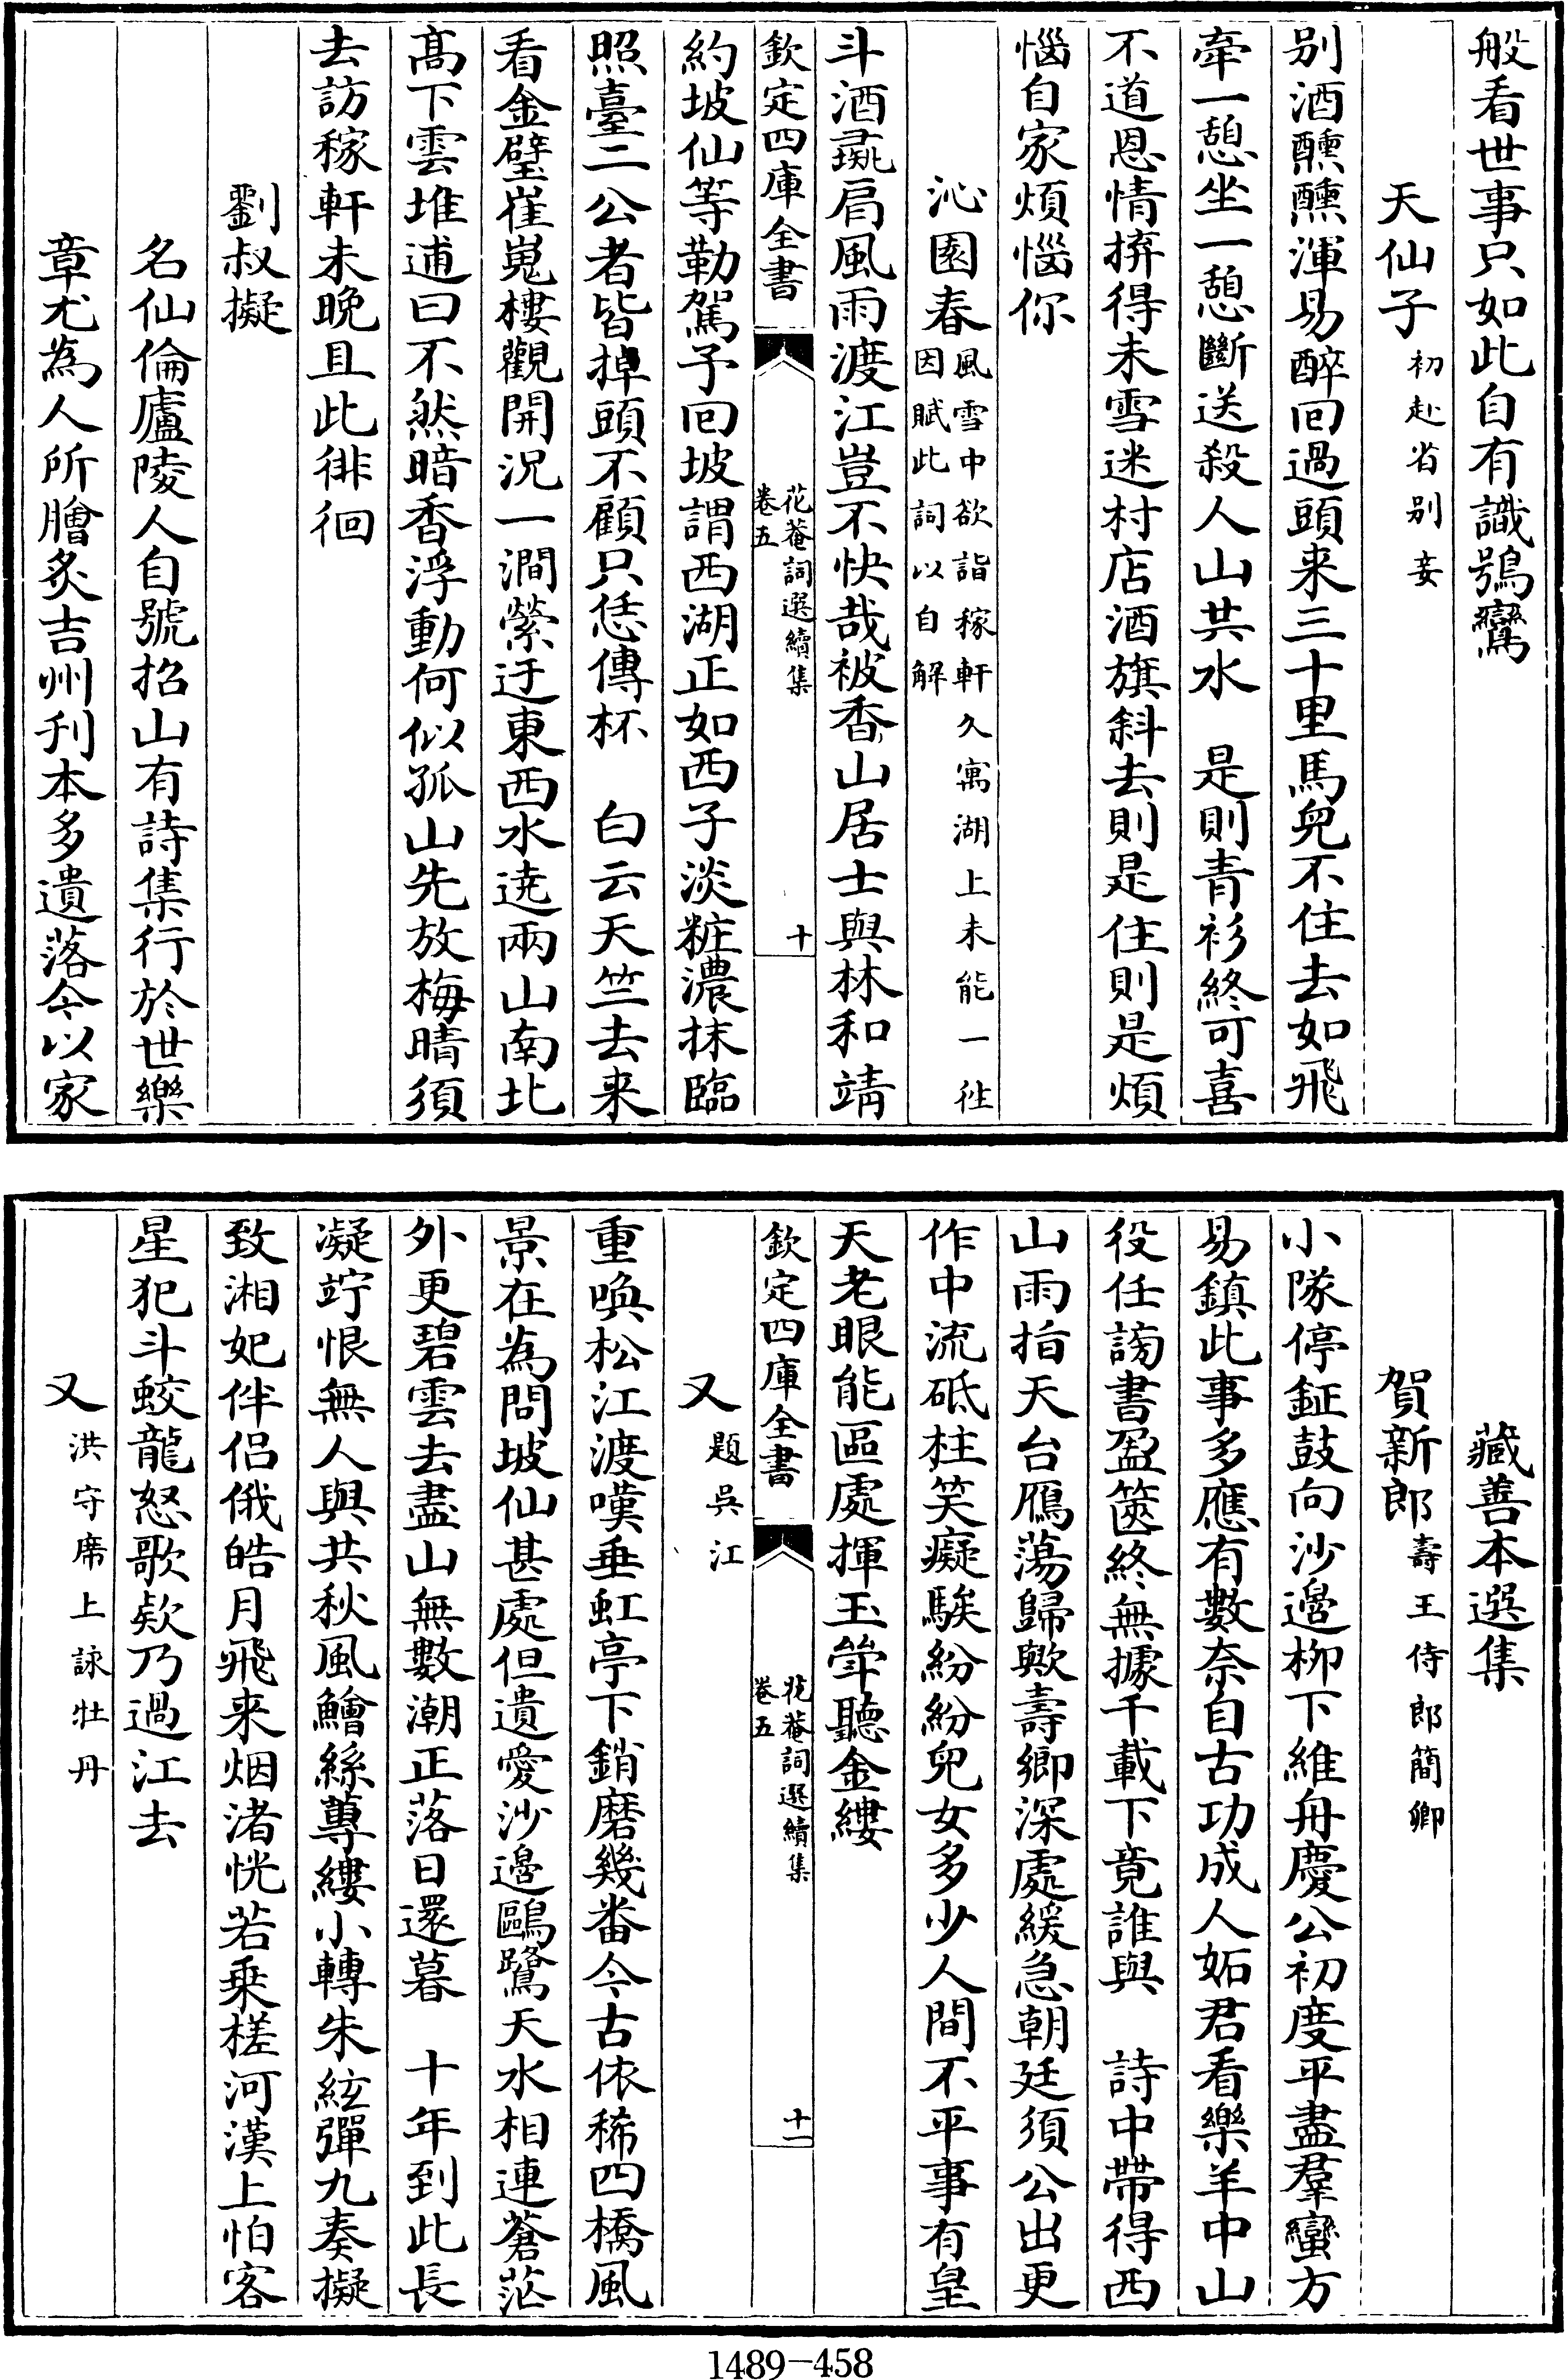 般看世事只如此自有識鴞鸞
天仙子初赴省别妾
别酒醺醺渾易醉回過頭来三十里馬兒不住去如飛
牽一憩坐一憩斷送殺人山共水　是則青衫終可喜
不道恩情拚得未雪迷村店酒旗斜去則是住則是煩
惱自家煩惱你
沁園春風雪中欲詣稼軒久寓湖上未能一徃
因賦此詞以自解
斗酒彘肩風雨渡江豈不快哉被香山居士與林和靖
欽定四庫全書
花菴詞選續集
卷五
十
約坡仙等勒駕予回坡謂西湖正如西子淡粧濃抹臨
照臺二公者皆掉頭不顧只恁傳杯　白云天竺去来
看金璧崔嵬樓觀開況一澗縈迂東西水遶兩山南北
髙下雲堆逋曰不然暗香浮動何似孤山先放梅晴須
去訪稼軒未晚且此徘徊
劉叔擬
名仙倫廬陵人自號招山有詩集行於世樂
章尤為人所膾炙吉州刋本多遺落今以家
藏善本選集
賀新郎壽王侍郎簡卿
小隊停鉦鼓向沙邉栁下維舟慶公初度平盡羣蠻方
易鎮此事多應有數奈自古功成人妬君看樂羊中山
役任謗書盈篋終無據千載下竟誰與　詩中帶得西
山雨指天台鴈蕩歸歟壽鄉深處緩急朝廷須公出更
作中流砥柱笑癡騃紛紛兒女多少人間不平事有皇
天老眼能區處揮玉斚聽金縷
欽定四庫全書
花菴詞選續集
卷五
十一
又題吳江
重喚松江渡嘆垂虹亭下銷磨幾番今古依稀四橋風
景在為問坡仙甚處但遺愛沙邉鷗鷺天水相連蒼茫
外更碧雲去盡山無數潮正落日還暮　十年到此長
凝竚恨無人與共秋風鱠絲蓴縷小轉朱絃彈九奏擬
致湘妃伴侣俄皓月飛来烟渚恍若乗槎河漢上怕客
星犯斗蛟龍怒歌欸乃過江去
又洪守席上詠牡丹
1489-458